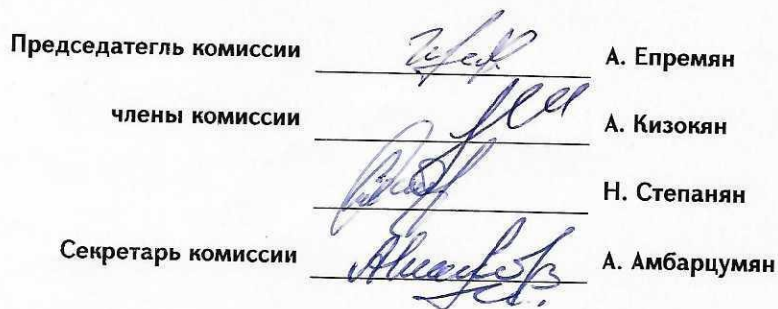 Председатегль комиссии А. Епремян
члены комиссии А. Кизокян
Н. Степанян
Секретарь комиссии А. Амбарцумян